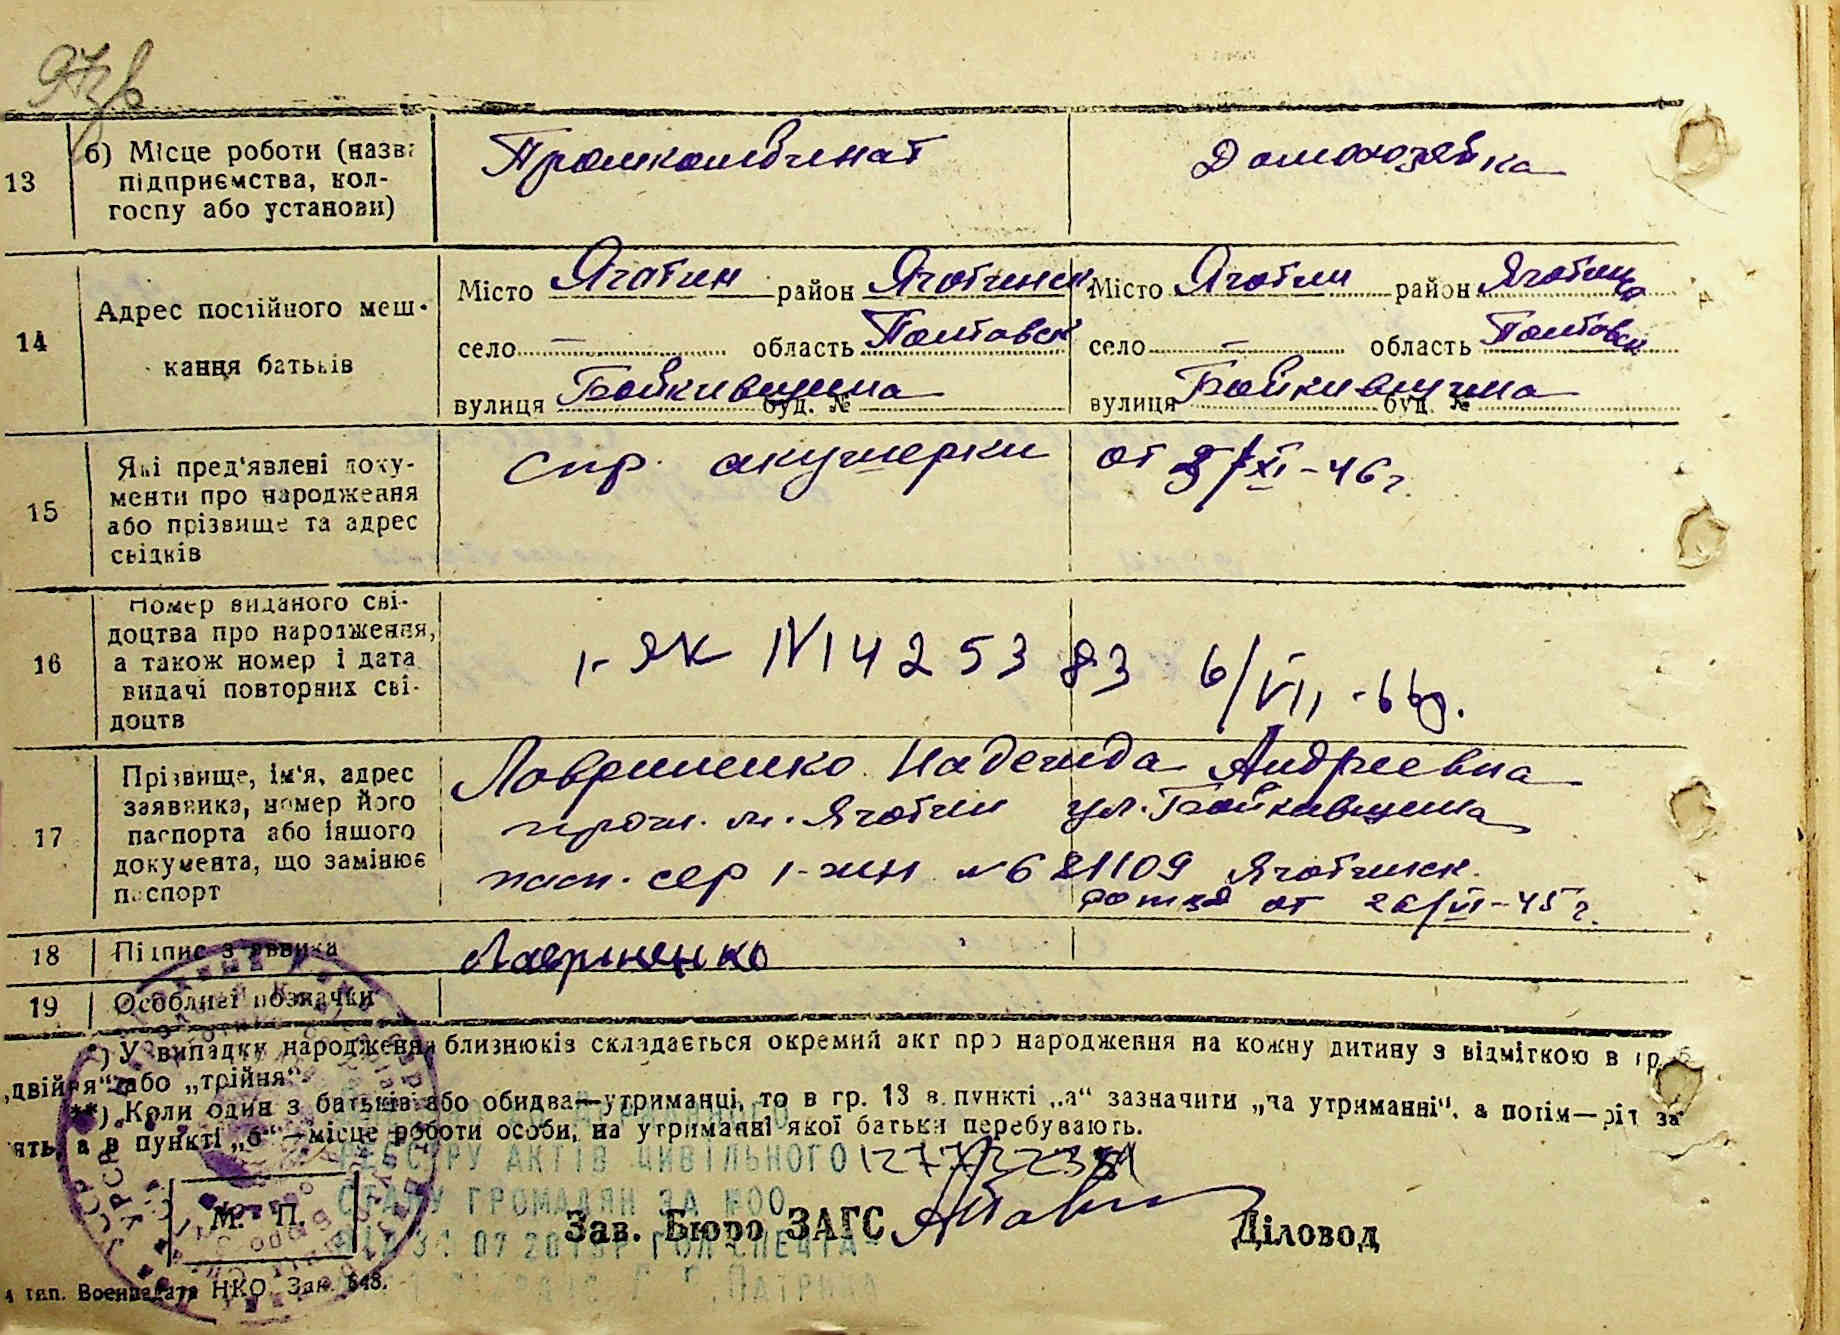 13 б) Місце роботи (назва Промкомбинат Домохозяйка
підприємства, кол-
госпу або установи)
Місто Яготин район Яготинск Місто Яготин район
14 Адрес постійного меш-
кання батьків
село — область Полтавск село — область Полтавск
вулиця Бойкивщина буд. № вулиця Бойкивщина буд. №
15 Які пред'явлені доку-
менти про народження
або прізвище та адрес
свідків
Спр. акушерки от /XI-46 г.
16 Номер виданого сві-
доцтва про народження,
а також номер і дата
видачі повторних сві-
доцтв
І-ЯК № 425383 6/VII-66
17 Прізвище, ім'я, адрес
заявника, номер його
паспорта або іншого
документа, що замінює
паспорт
Лавриненко Надежда Андреевна
м. Яготин ул. Бойкивщина
пасп. сер № 621109 Яготинск.
от 26/VI-45 г.
18 Підпис заявника Лавриненко
19 Особливі позначки
*) У випадку народження близнюків складається окремий акт про народження на кожну дитину з відміткою в гр.
„двійня“ або „трійня“.
**) Коли один з батьків або обидва—утриманці, то в гр. 13 в пункті „а“ зазначити „на утриманні“, а потім—рід за
нять, а в пункті „б“—місце роботи особи, на утриманні якої батьки перебувають.
РЕЄСТРУ АКТІВ ЦИВІЛЬНОГО
СТАНУ ГРОМАДЯН ЗА №00
М. П. Зав. Бюро ЗАГС Діловод
тип. Воениздата НКО. Зак. 648.